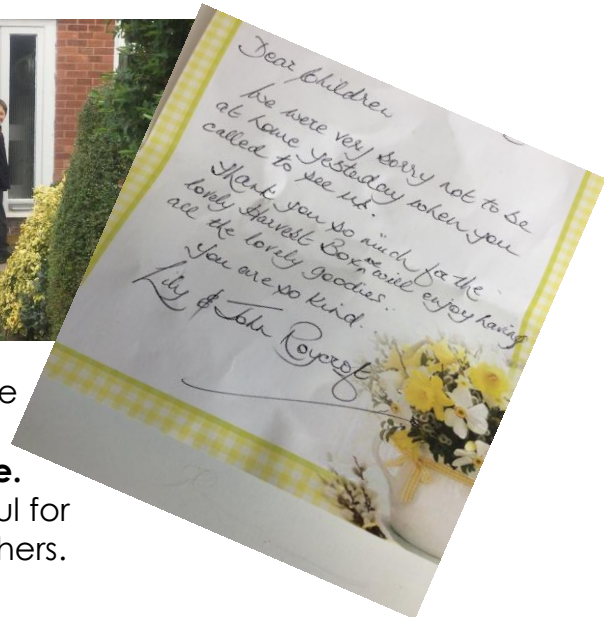 Dear Children
We were very sorry not to be
at home yesterday when you
called to see us.
Thank you so much for the
lovely Harvest Box, we will enjoy having
all the lovely goodies.
You are so kind.
Lily & John Roycroft
e
e.
ul for
hers.